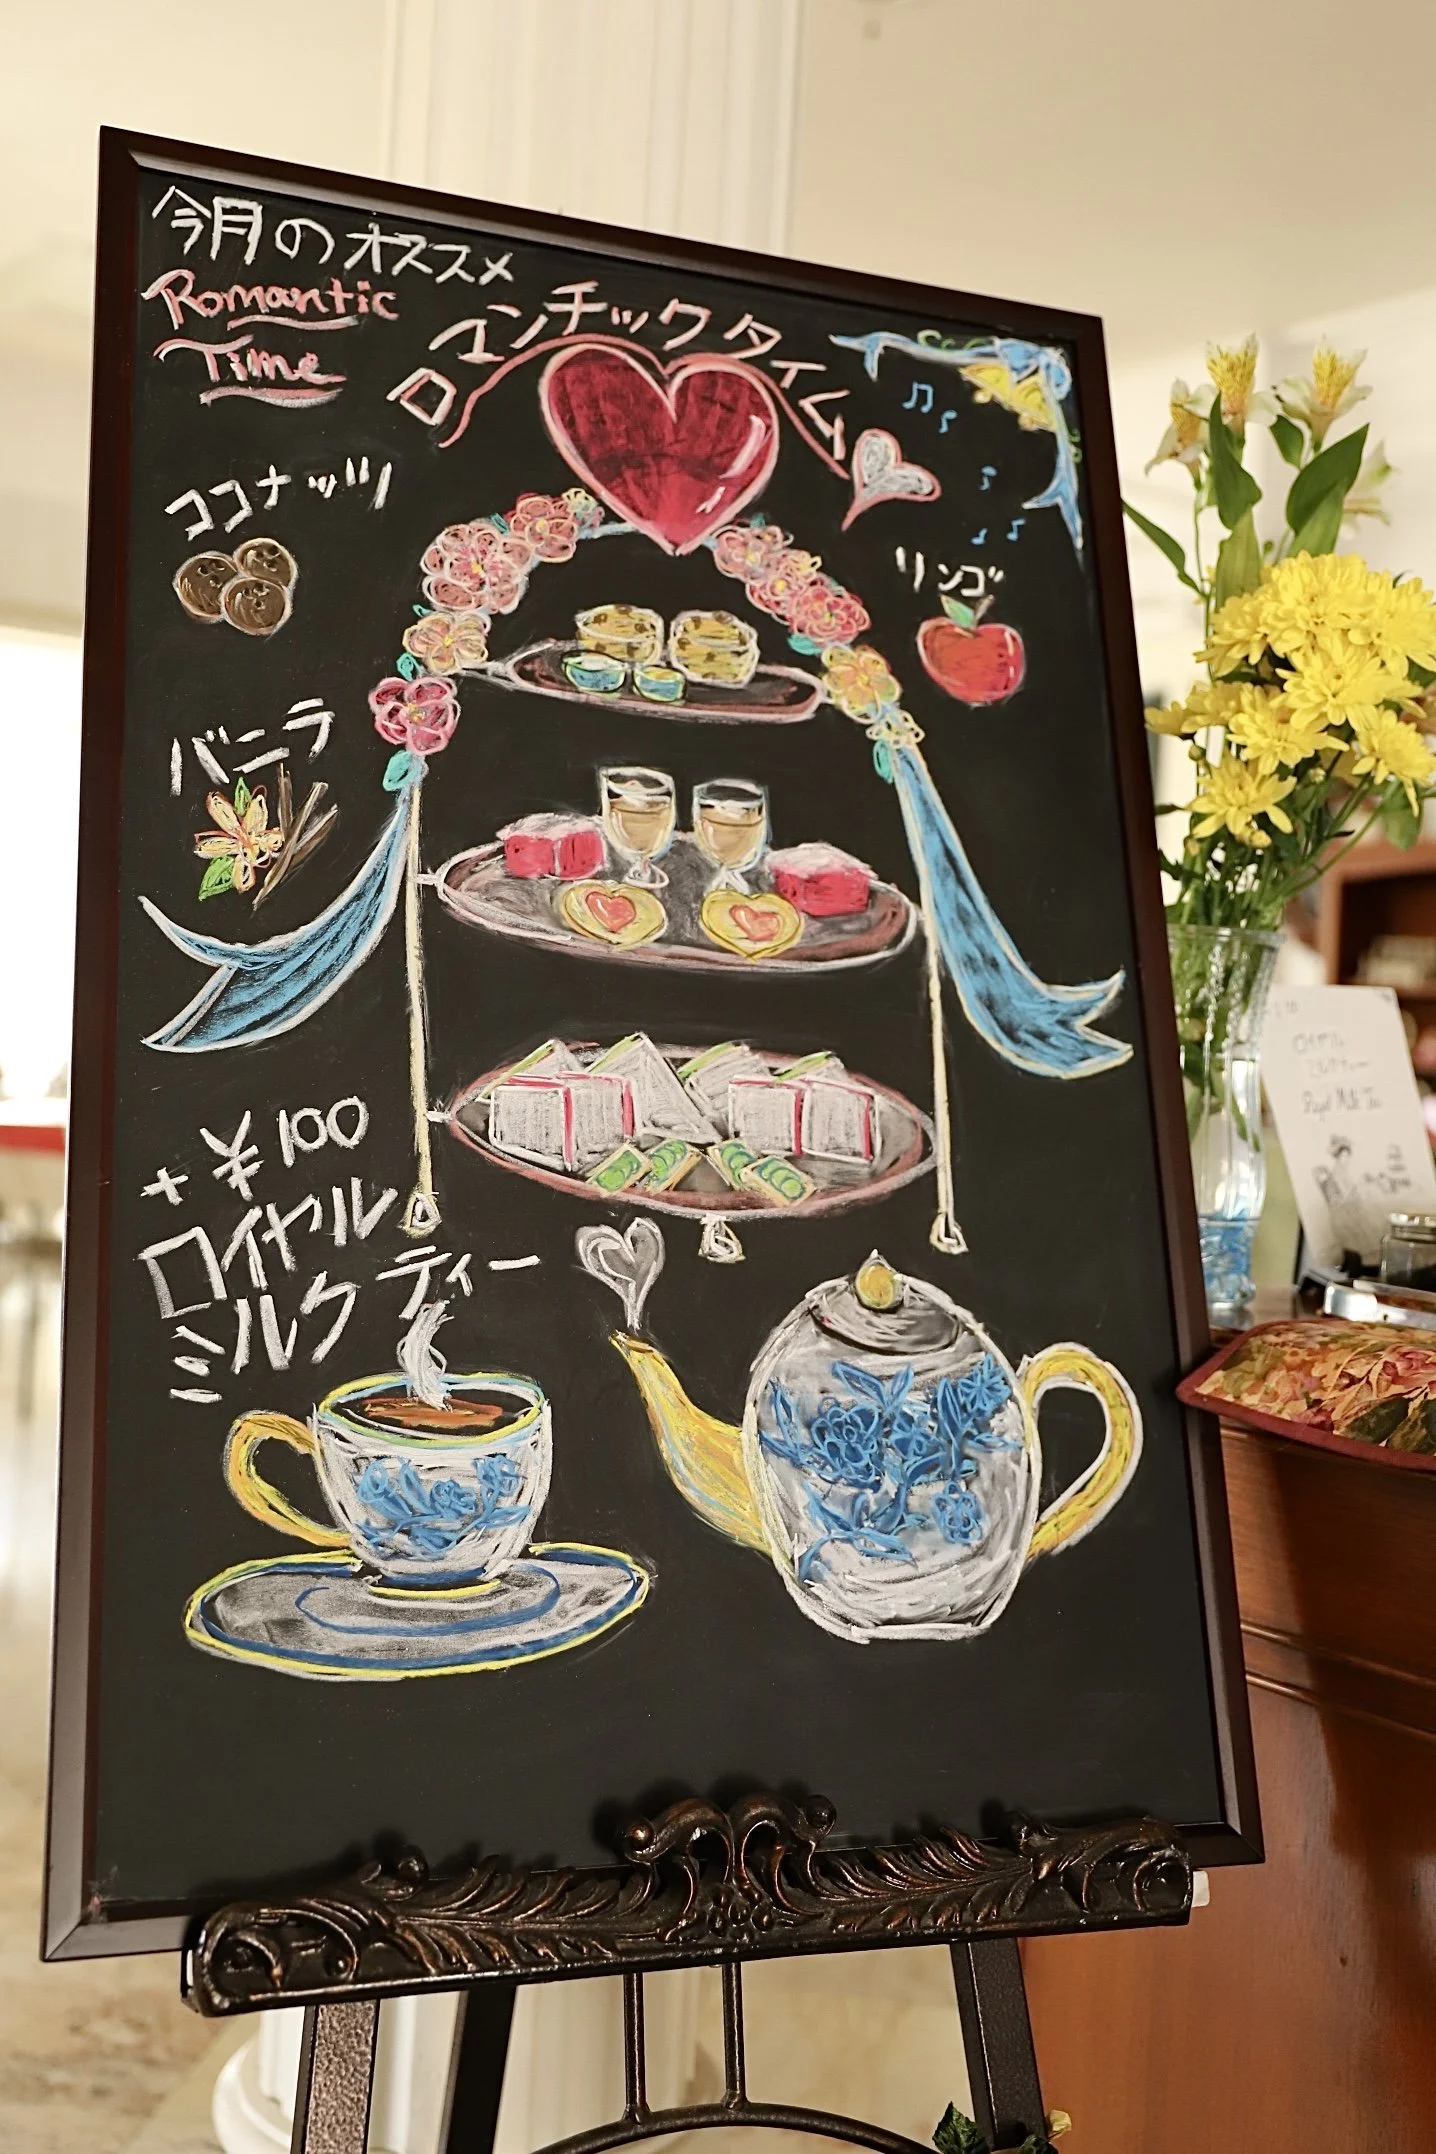 今月のオススメ
Romantic
Time
ロマンチックタイム
ココナッツ
リンゴ
バニラ
+ ¥100
ロイヤル
ミルクティー
ロイヤル
ミルクティー